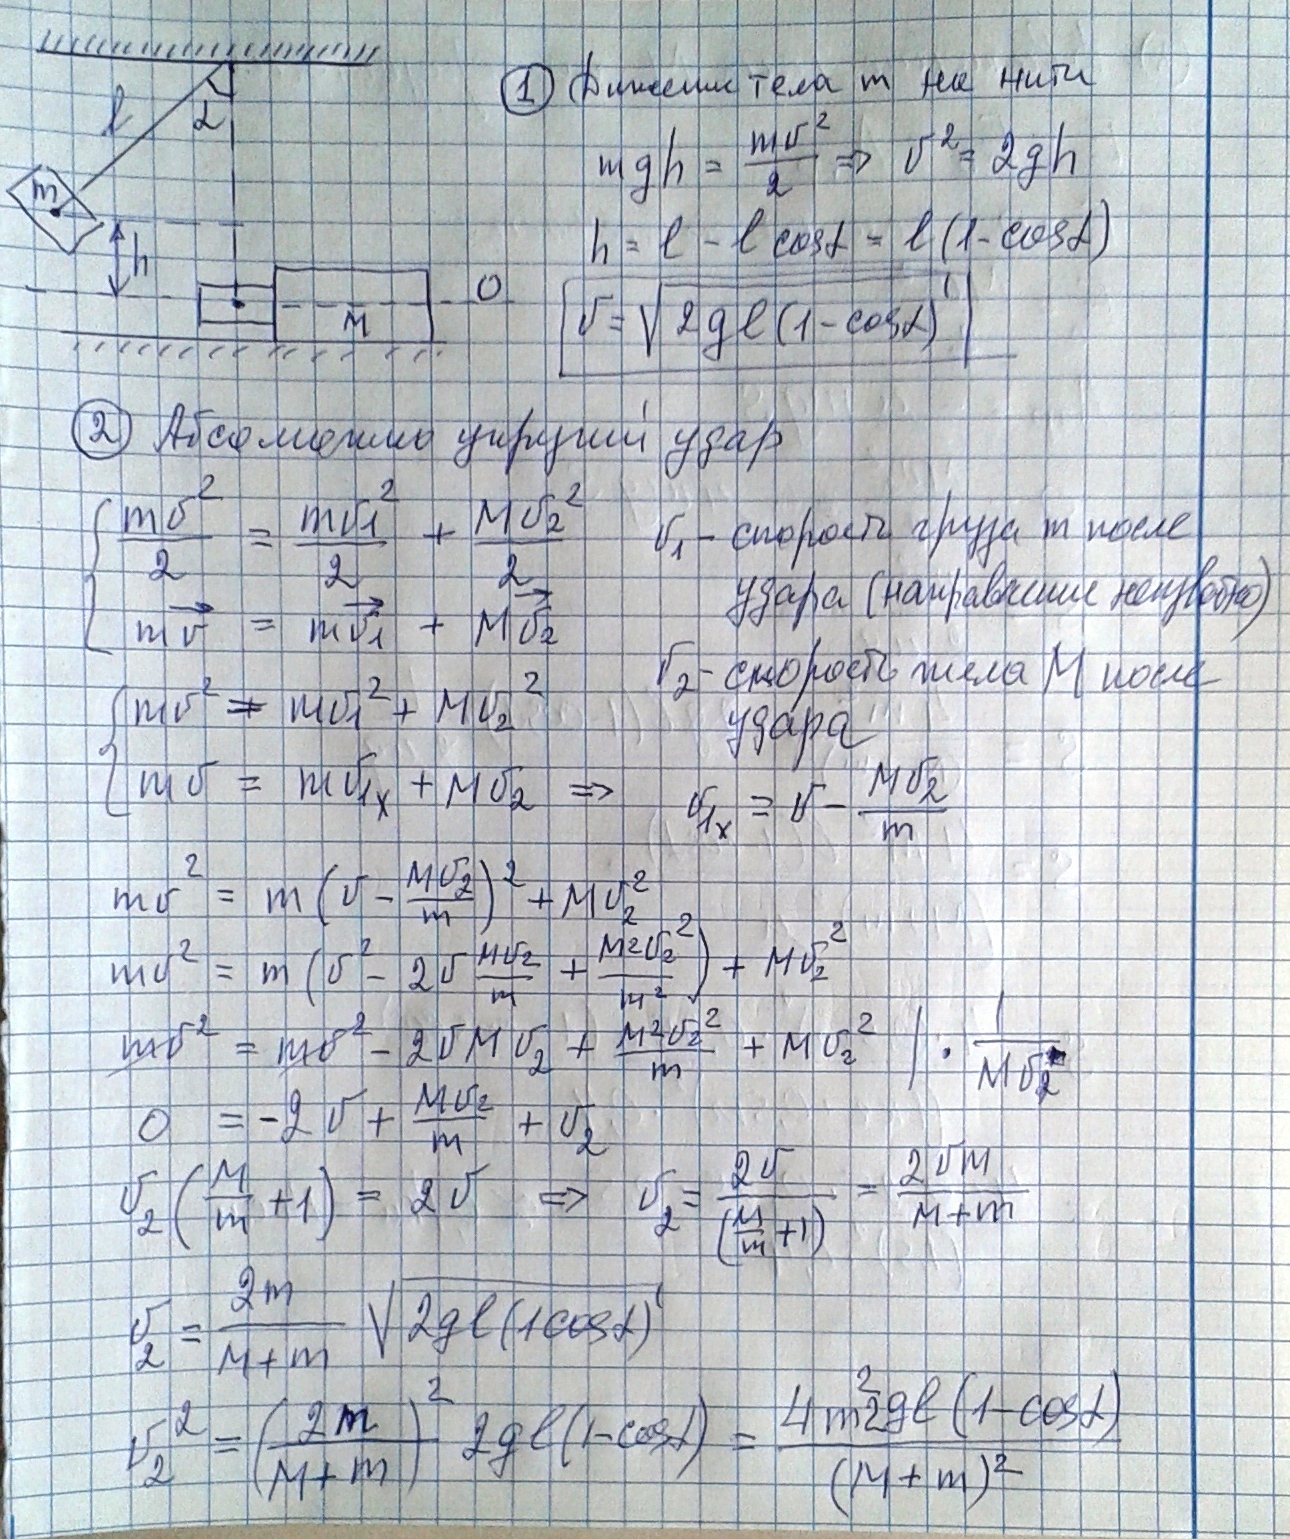 l
α
m
h
M
0
① Движение тела m на нити
mgh = mv²/2 ⇒ v² = 2gh
h = l - l cosα = l(1-cosα)
v = √(2gl(1-cosα))
② Абсолютно упругий удар
mv²/2 = mv₁²/2 + Mv₂²/2
v₁ - скорость груза m после
удара (направление неизвестно)
mv⃗ = mv⃗₁ + Mv⃗₂
v₂ - скорость тела M после
удара
mv² = mv₁² + Mv₂²
mv = mv₁ₓ + Mv₂ ⇒ v₁ₓ = v - Mv₂/m
mv² = m(v - Mv₂/m)² + Mv₂²
mv² = m(v² - 2v Mv₂/m + M²v₂²/m²) + Mv₂²
mv² = mv² - 2vMv₂ + M²v₂²/m + Mv₂² | · 1/Mv₂
0 = -2v + Mv₂/m + v₂
v₂(M/m + 1) = 2v ⇒ v₂ = 2v/(M/m + 1) = 2vm/(M+m)
v₂ = 2m/(M+m) √(2gl(1cosα))
v₂² = (2m/(M+m))² 2gl(1-cosα) = 4m²2gl(1-cosα)/(M+m)²